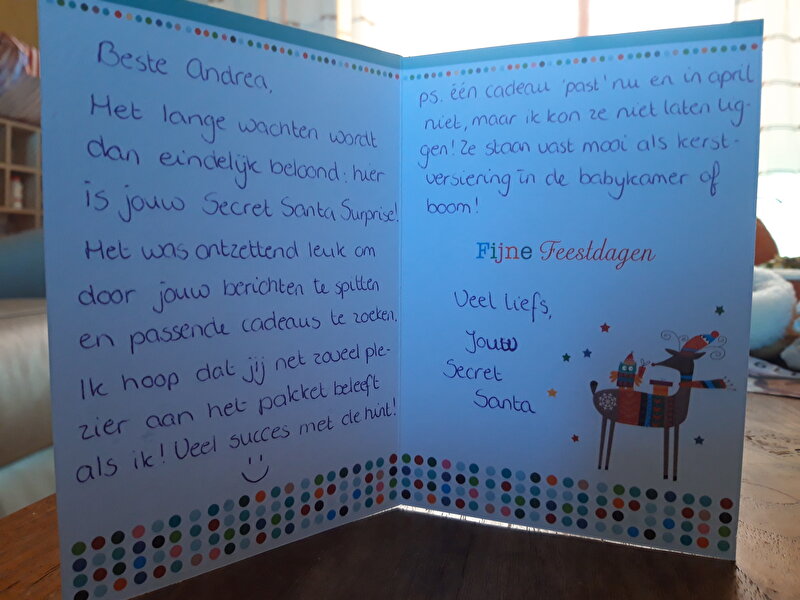 Beste Andrea,
Het lange wachten wordt
dan eindelijk beloond: hier
is jouw Secret Santa Surprise!
Het was ontzettend leuk om
door jouw berichten te spitten
en passende cadeaus te zoeken.
Ik hoop dat jij net zoveel ple-
zier aan het pakket beleeft
als ik! Veel succes met de hint!
ps. één cadeau 'past' nu en in april
niet, maar ik kon ze niet laten lig-
gen! Ze staan vast mooi als kerst-
versiering in de babykamer of
boom!
Fijne Feestdagen
Veel liefs,
Jouw
Secret
Santa